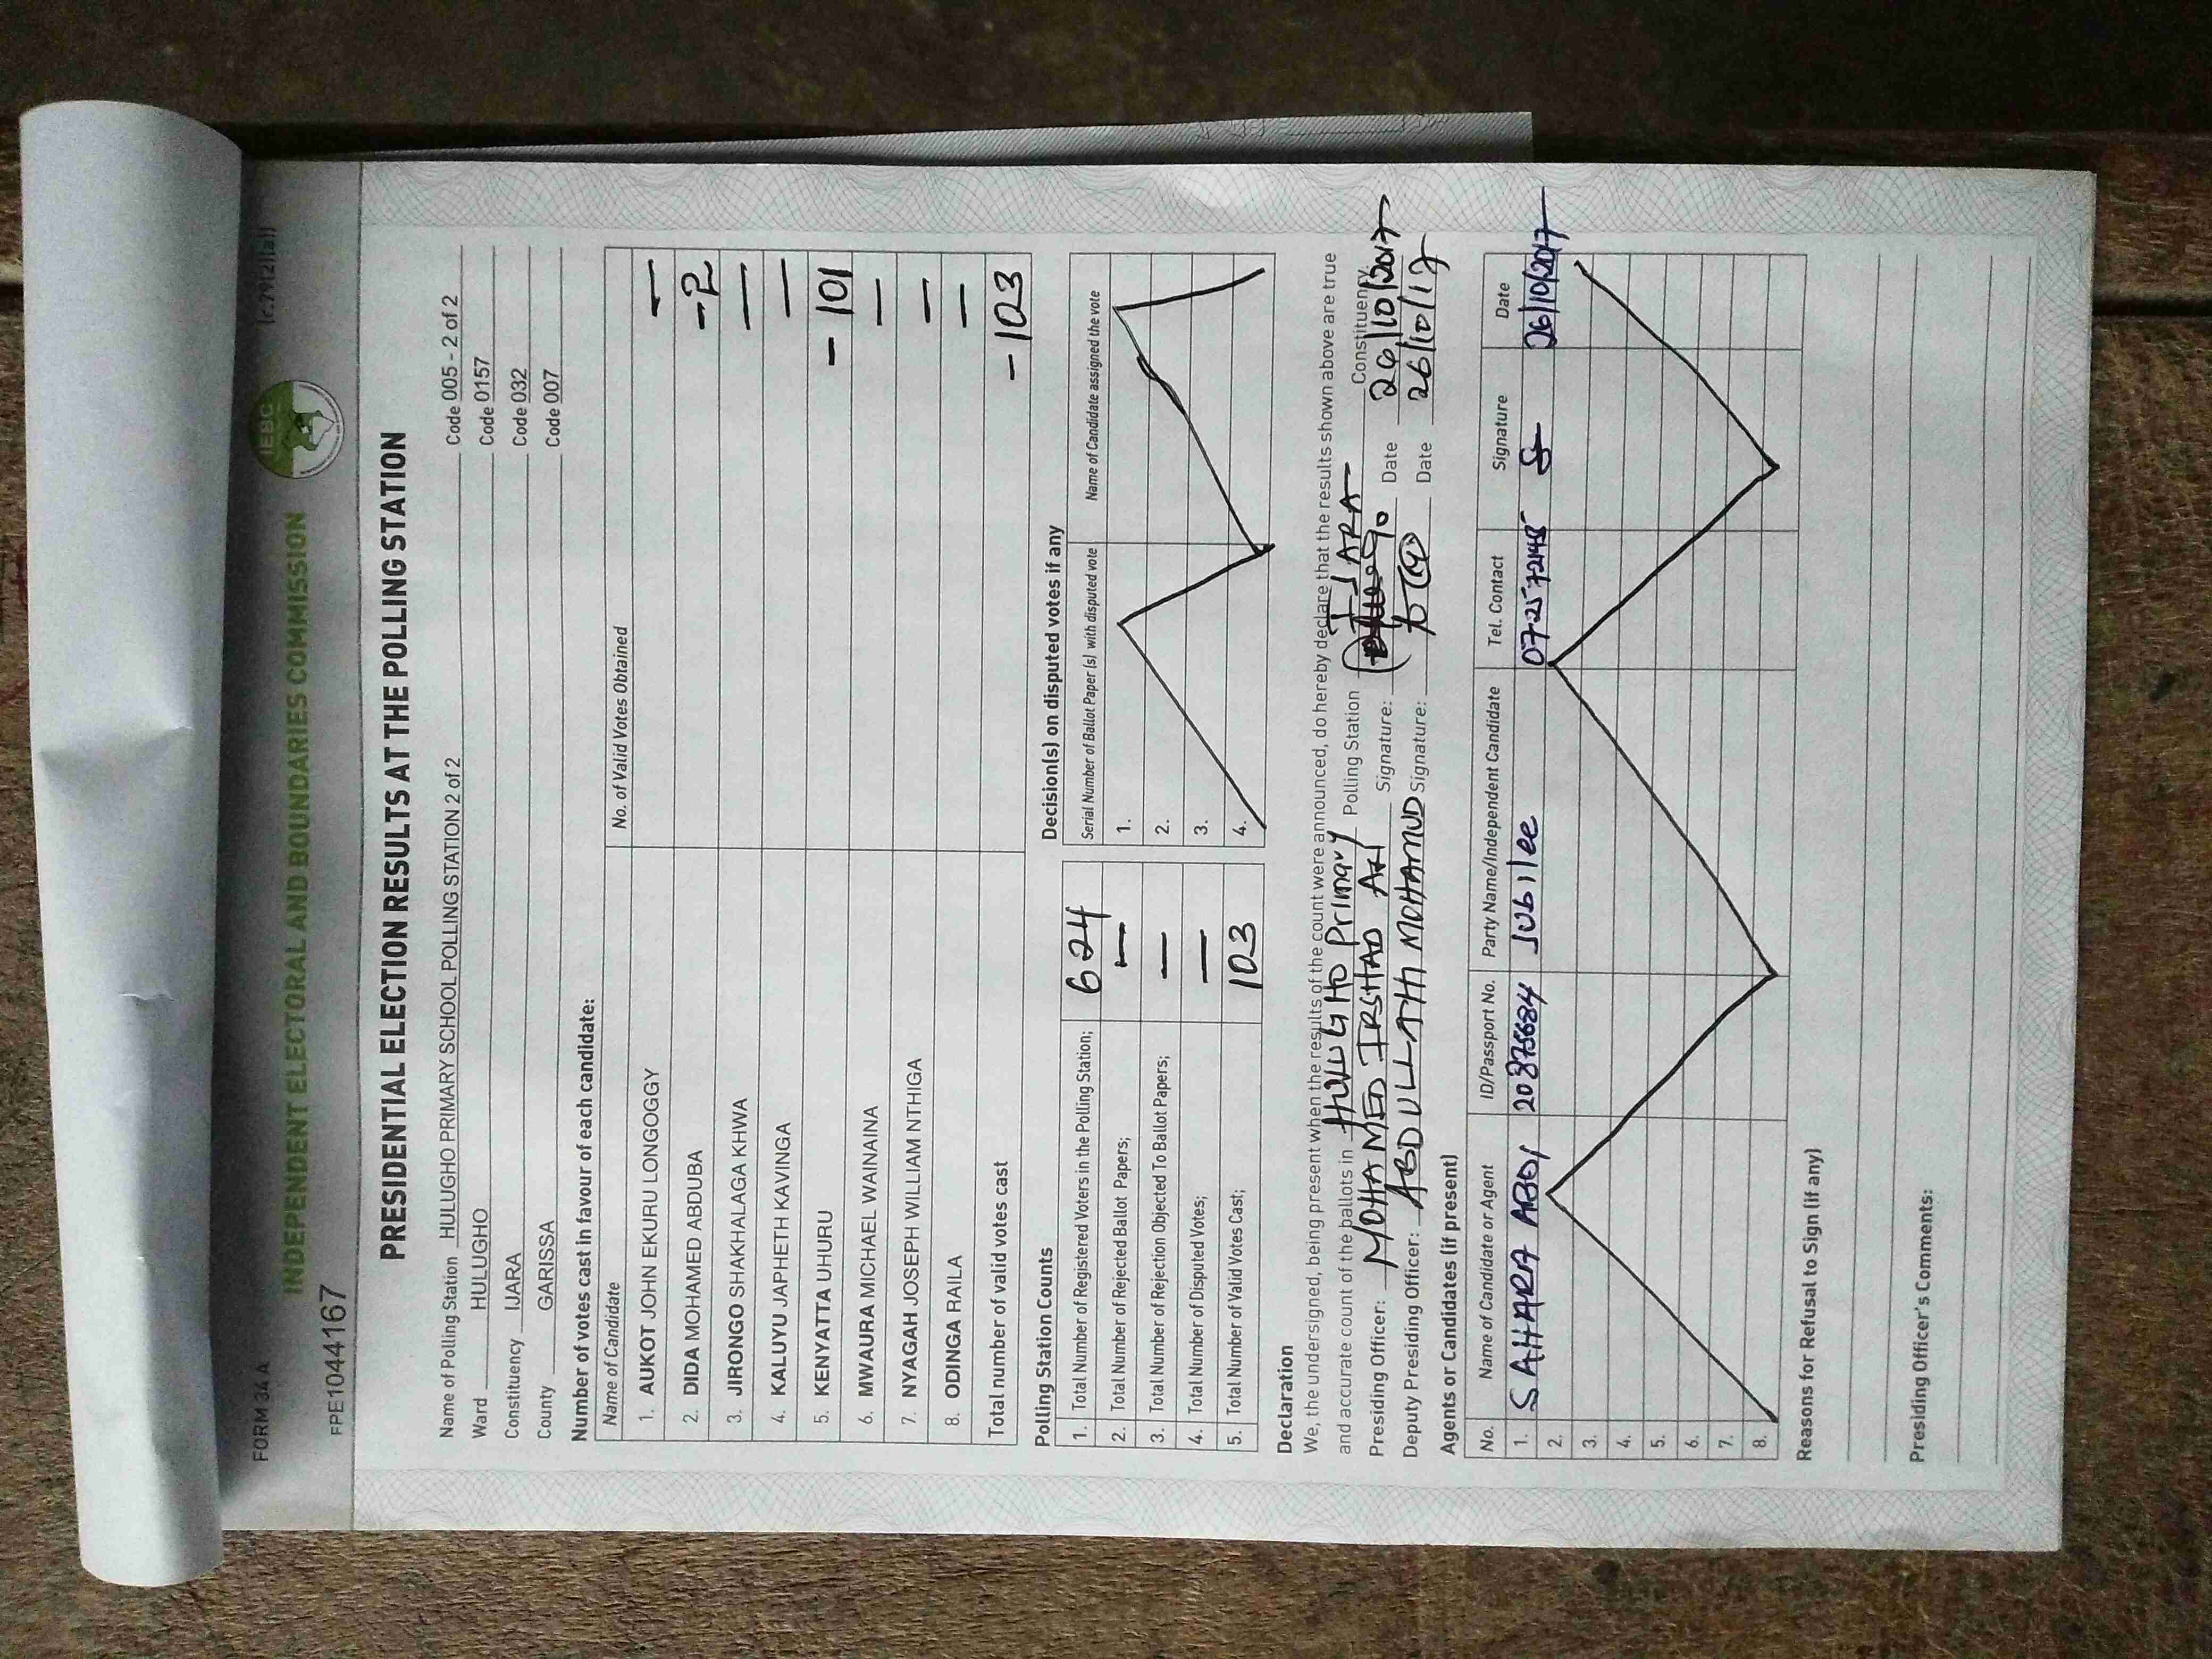 FORM 34 A (r.79(2)(a))
IEBC
INDEPENDENT ELECTORAL AND BOUNDARIES COMMISSION
FPE1044167
PRESIDENTIAL ELECTION RESULTS AT THE POLLING STATION
Name of Polling Station HULUGHO PRIMARY SCHOOL POLLING STATION 2 of 2 Code 005 - 2 of 2
Ward HULUGHO Code 0157
Constituency IJARA Code 032
County GARISSA Code 007
Number of votes cast in favour of each candidate:
Name of Candidate No. of Valid Votes Obtained
1. AUKOT JOHN EKURU LONGOGGY —
2. DIDA MOHAMED ABDUBA -2
3. JIRONGO SHAKHALAGA KHWA —
4. KALUYU JAPHETH KAVINGA —
5. KENYATTA UHURU - 101
6. MWAURA MICHAEL WAINAINA —
7. NYAGAH JOSEPH WILLIAM NTHIGA —
8. ODINGA RAILA —
Total number of valid votes cast - 103
Polling Station Counts
1. Total Number of Registered Voters in the Polling Station; 624
2. Total Number of Rejected Ballot Papers; —
3. Total Number of Rejection Objected To Ballot Papers; —
4. Total Number of Disputed Votes; —
5. Total Number of Valid Votes Cast; 103
Decision(s) on disputed votes if any
Serial Number of Ballot Paper (s) with disputed vote Name of Candidate assigned the vote
1.
2.
3.
4.
Declaration
We, the undersigned, being present when the results of the count were announced, do hereby declare that the results shown above are true
and accurate count of the ballots in HULUGHO Primary Polling Station IJARA Constituency
Presiding Officer: MOHAMED IRSHAD Signature: Date 26/10/2017
Deputy Presiding Officer: ABDULLATHI MOHAMUD Signature: Date 26/10/17
Agents or Candidates (if present)
No. Name of Candidate or Agent ID/Passport No. Party Name/Independent Candidate Tel. Contact Signature Date
1. SAHARA ABDI 20875684 Jubilee 26/10/2017
2.
3.
4.
5.
6.
7.
8.
Reasons for Refusal to Sign (if any)
Presiding Officer's Comments: